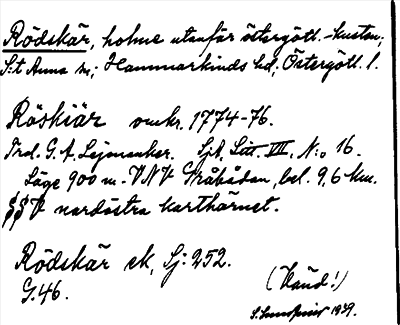 Rödskär, holme utanför östergötl.-kusten;
S:t Anna sn; Hammarkinds hd; Östergötl. l.
Röskiär omkr. 1774-76.
Trol. G. A. Lejonanker. Sjk. Litt. VII. N:o 16.
Läge 900 m. VNV Gråbådan, bel. 9,6 km.
§§V nordöstra karthörnet.
Rödskär ek, Sj: 252.
G. 46.
(Känd!)
1939.